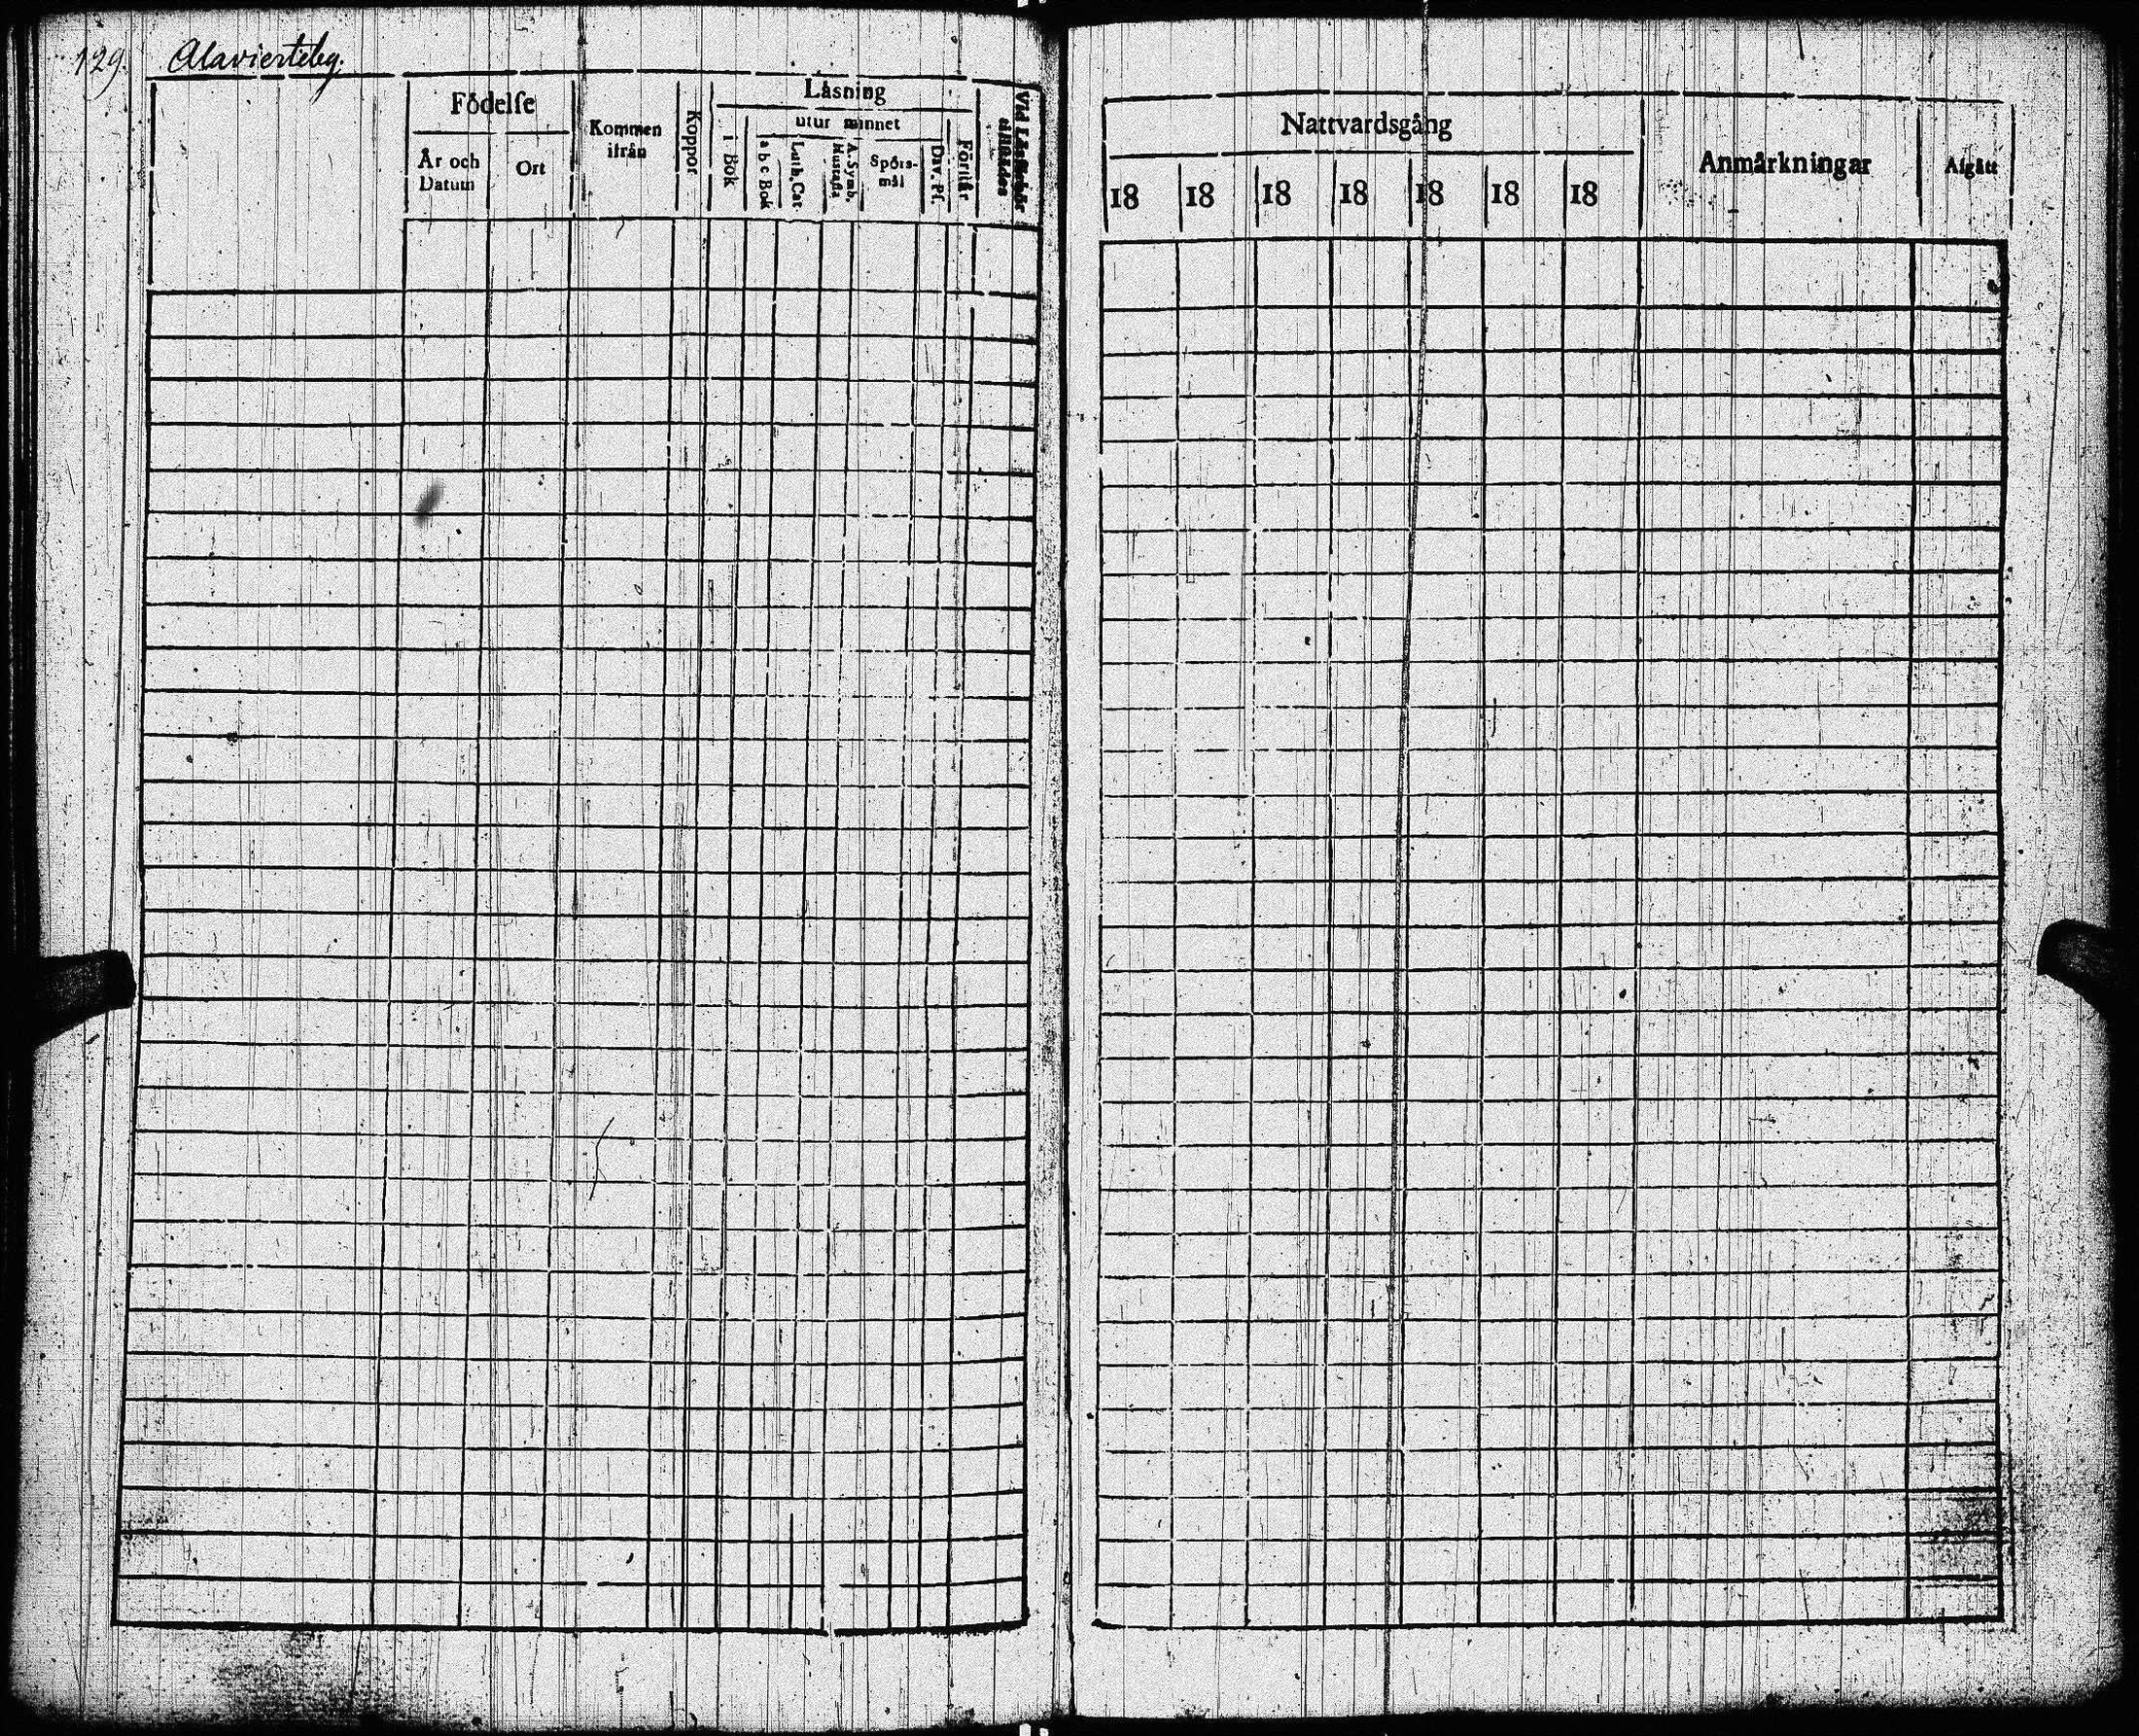 129. Alavierteby.
Födelse
År och Datum
Ort
Kommen ifrån
Koppor
Läsning
i Bok
utur minnet
a b c Bok
Luth. Cat.
A. Symb. Hustafla
Spörsmål
Dav. Ps.
Förstår
Nattvardsgång
18 18 18 18 18 18 18
Anmärkningar
Afgått